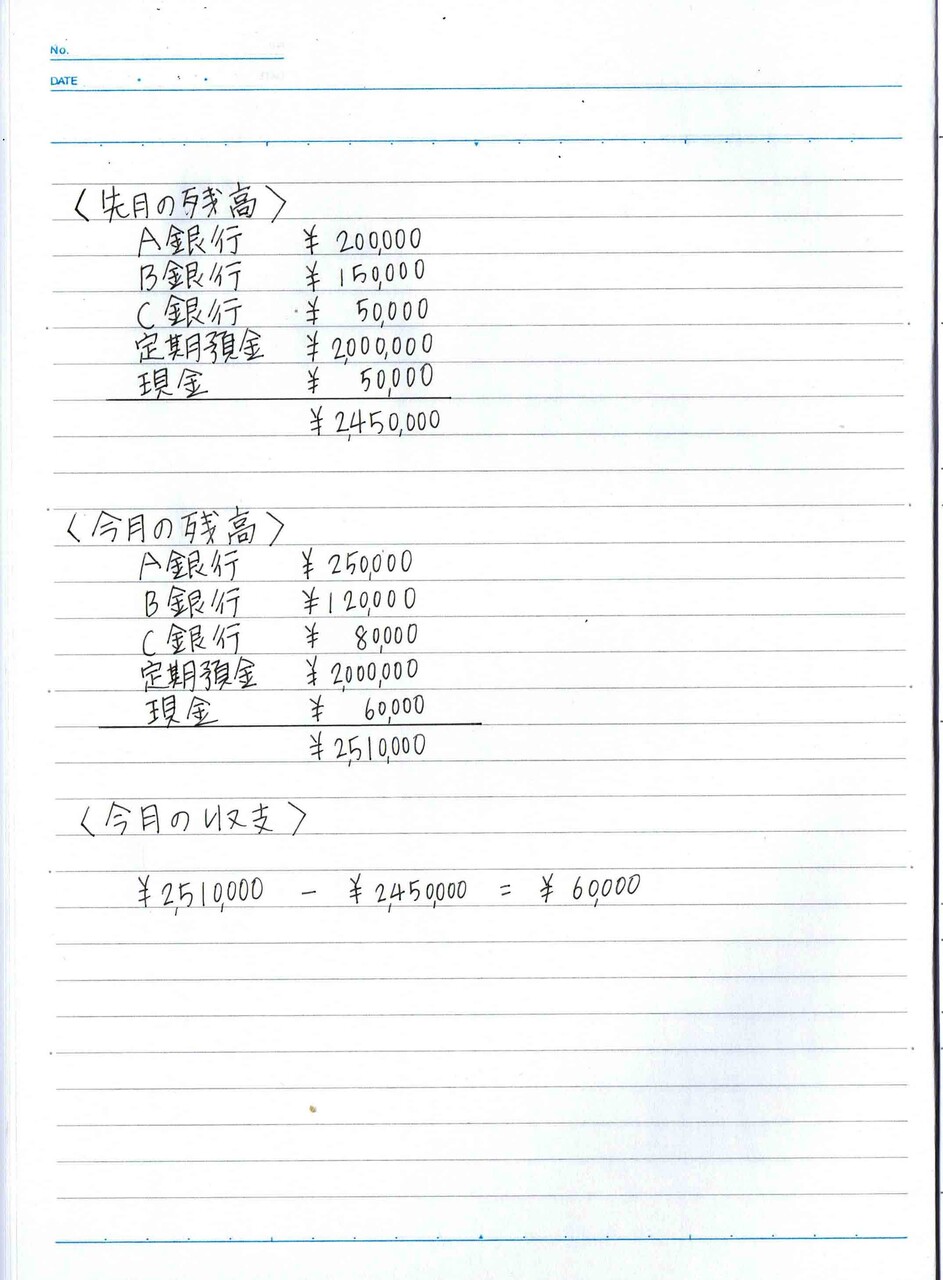 No.
DATE
〈先月の残高〉
A銀行 ¥ 200,000
B銀行 ¥ 150,000
C銀行 ¥ 50,000
定期預金 ¥ 2,000,000
現金 ¥ 50,000
¥ 2,450,000
〈今月の残高〉
A銀行 ¥ 250,000
B銀行 ¥ 120,000
C銀行 ¥ 80,000
定期預金 ¥ 2,000,000
現金 ¥ 60,000
¥ 2,510,000
〈今月の収支〉
¥ 2,510,000 − ¥ 2,450,000 = ¥ 60,000